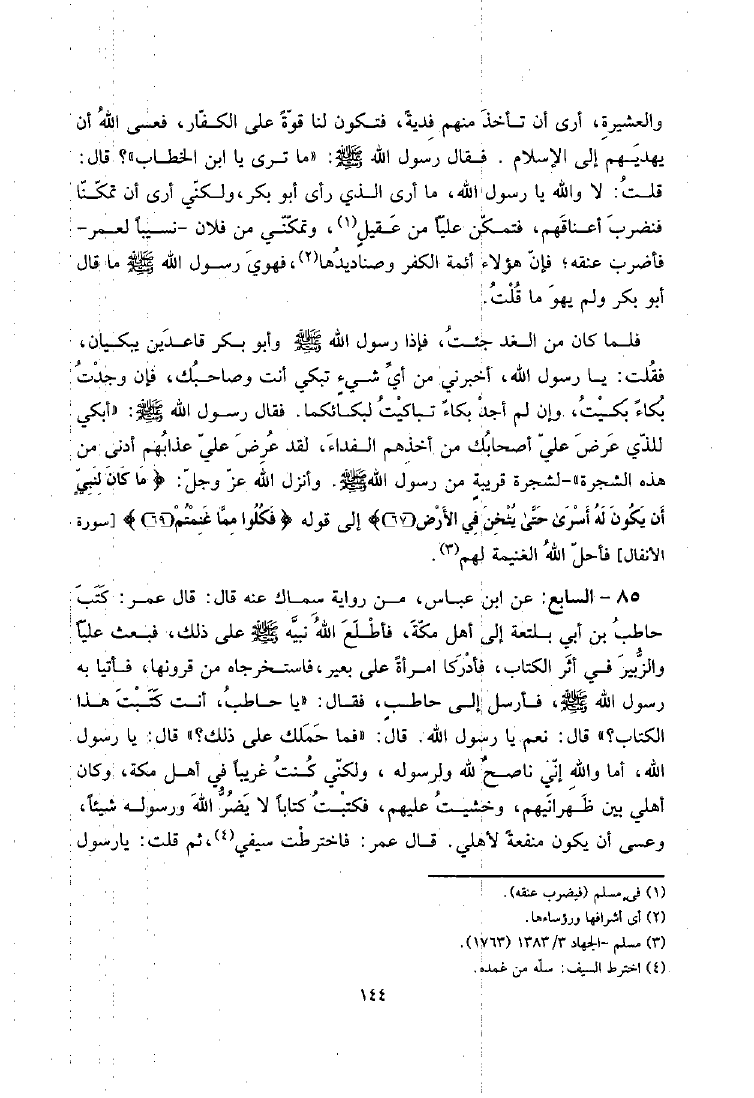 والعشيرة، أرى أن تـأخذَ منهم فديةً، فتـكون لنا قوّةً على الكـفّار، فعـسى اللهُ أن
يهديَـهم إلى الإسلام . فـقال رسول الله ﷺ: «ما تـرى يا ابن الخطـاب»؟ قال:
قلـتُ: لا والله يا رسول الله، ما أرى الـذي رأى أبو بكر، ولـكنّي أرى أن تمكّـنّا
فنضربَ أعـناقَهم، فتمـكّن عليّاً من عَـقيلٍ(١)، وتمكّنّـي من فلان -نسيباً لعمـر-
فأضربَ عنقه؛ فإنّ هؤلاء أئمة الكفر وصناديدُها(٢)، فهويَ رسـول الله ﷺ ما قال
أبو بكر ولم يهوَ ما قُلْتُ.
فلـما كان من الـغد جئـتُ، فإذا رسول الله ﷺ وأبو بـكر قاعـدَين يبكـيان،
فقُلت: يـا رسول الله، أخبرني من أيِّ شـيءٍ تبكي أنت وصاحبـُك، فإن وجدْتُ
بُكاءً بكـيْتُ، وإن لم أجدْ بكاءً تـباكيْتُ لبكـائكما. فقال رسـول الله ﷺ: «أبكي
للذّي عَرضَ عليّ أصحابُك من أخذهم الـفداءَ، لقد عُرضَ عليّ عذابُهم أدنى من
هذه الشجرة»-لشجرة قريبةٍ من رسول اللهﷺ. وأنزل الله عزّ وجلّ: ﴿ مَا كَانَ لِنَبِيٍّ
أَن يَكُونَ لَهُ أَسْرَىٰ حَتَّىٰ يُثْخِنَ فِي الأَرْضِ (٦٧)﴾ إلى قوله ﴿ فَكُلُوا مِمَّا غَنِمْتُمْ (٦٩) ﴾ [سورة
الأنفال] فأحلّ اللهُ الغنيمة لهم(٣).
٨٥ - السابع: عن ابن عبـاس، مـن رواية سمـاك عنه قال: قال عمـر: كَتَبَ
حاطبُ بن أبي بـلتعة إلى أهل مكّة، فأطْـلَعَ اللهُ نبيَّه ﷺ على ذلك، فبـعث عليّاً
والزُّبيرَ فـي أثَر الكتاب، فأدْركا امـرأةً على بعير، فاستـخرجاه من قرونها، فـأتيا به
رسول الله ﷺ، فـأرسل إلـى حاطـبٍ، فقـال: «يا حـاطبُ، أنـت كَتَـبْتَ هـذا
الكتاب؟» قال: نعم يا رسول الله. قال: «فما حَمَلك على ذلك؟» قال: يا رسول
الله، أما واللهِ إنّي ناصحٌ لله ولرسوله ، ولكنّي كُـنتُ غريباً في أهـل مكة، وكان
أهلي بين ظَـهرانَيهم، وخشيـتُ عليهم، فكتبْـتُ كتاباً لا يَضُرُّ اللهَ ورسولـه شيئاً،
وعسى أن يكون منفعةً لأهلي. قـال عمر: فاخترطْت سيفي(٤)، ثم قلت: يارسول
(١) في مسلم (فيضرب عنقه).
(٢) أى أشرافها ورؤساءها.
(٣) مسلم -الجهاد ٣/ ١٣٨٣ (١٧٦٣).
(٤) اخترط السيف: سلّه من غمده.
١٤٤